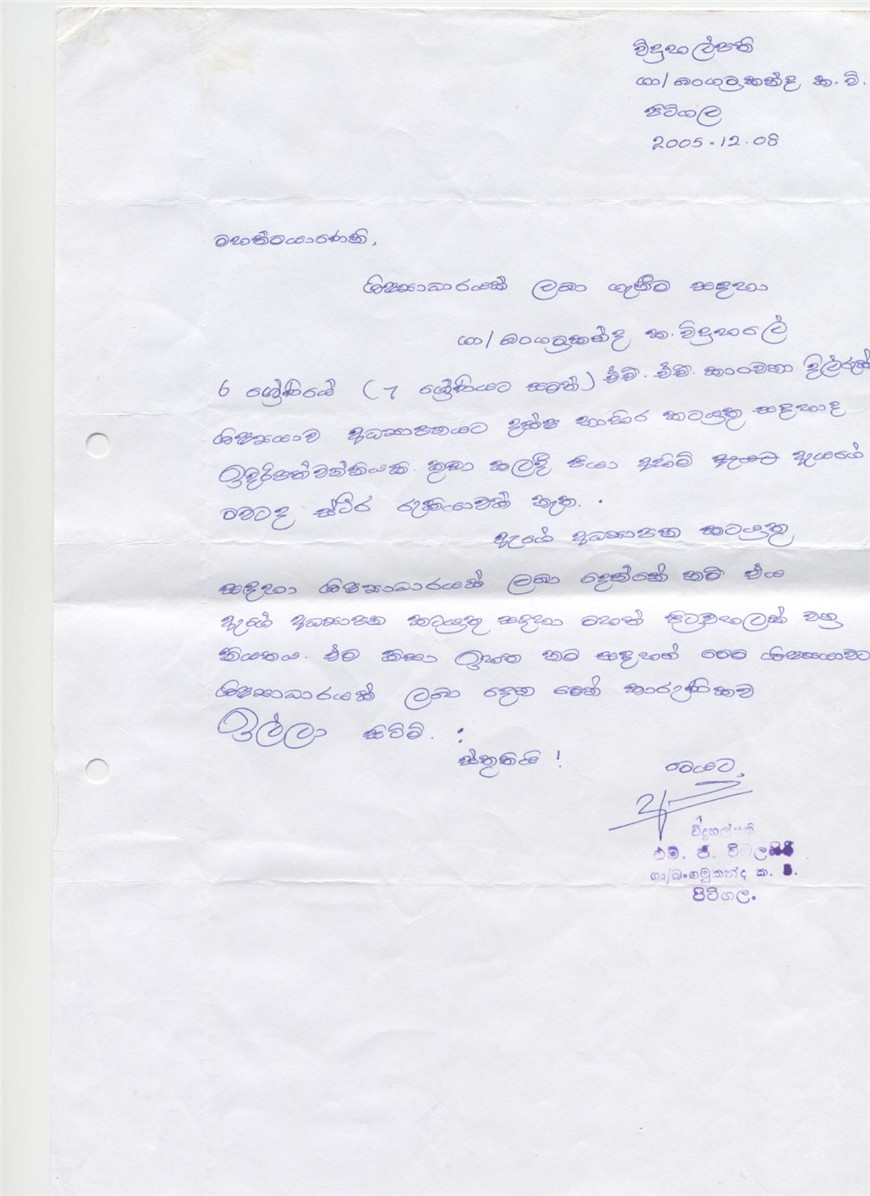 විදුහල්පති
ගා/බංගමුකන්ද ක.වි.
පිටිගල
2005.12.08
මහත්මයාණෙනි,
ශිෂ්‍යාධාරයක් ලබා ගැනීම සඳහා
ගා/බංගමුකන්ද ක.විදුහලේ
6 ශ්‍රේණියේ (7 ශ්‍රේණියට සමත්) එච්. එච්. කාංචනා
ශිෂ්‍යයාව අධ්‍යාපනයට දක්ෂ බාහිර කටයුතු සඳහාද
ඉදිරිපත්වන්නියකි. කුඩා කලදී පියා අහිමි ඇයගේ
මවටද ස්ථිර රැකියාවක් නැත.
ඇගේ අධ්‍යාපන කටයුතු
සඳහා ශිෂ්‍යාධාරයක් ලබා දෙන්නේ නම් එය
ඇගේ අධ්‍යාපන කටයුතු සඳහා මහත් පිටුවහලක් වනු
නියතය. එම නිසා ඉහත නම සඳහන් මෙම ශිෂ්‍යයාවට
ශිෂ්‍යාධාරයක් ලබා දෙන මෙන් කාරුණිකව
ඉල්ලා සිටිමි.
ස්තූතියි! මෙයට,
විදුහල්පති
එම්. ජී. විමලසිරි
ගා/බංගමුකන්ද ක. වි.
පිටිගල.